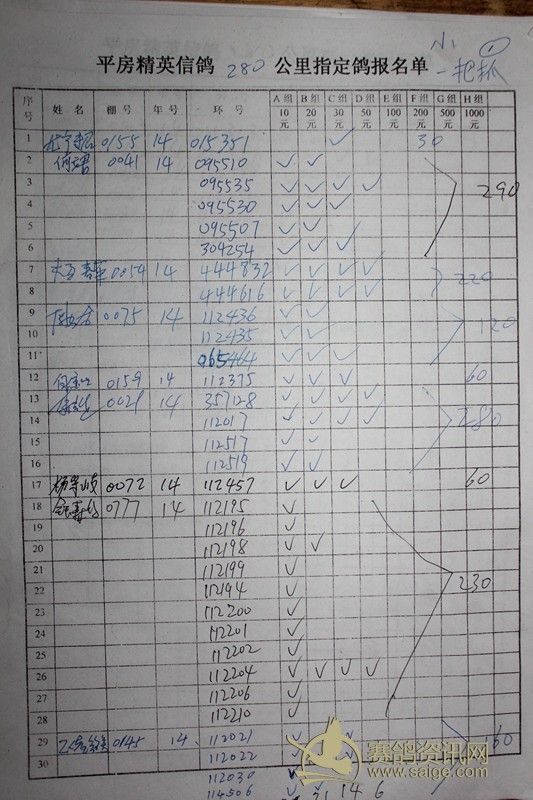 小 ①
平房精英信鸽 280 公里指定鸽报名单 一把抓
序号 姓名 棚号 年号 环号 A组10元 B组20元 C组30元 D组50元 E组100元 F组200元 G组500元 H组1000元
1 0155 14 015351 ✓ 30
2 0041 14 095510 ✓ ✓
3 095535 ✓ ✓ ✓ ✓ 290
4 095530 ✓ ✓ ✓
5 095507 ✓ ✓
6 304254 ✓ ✓ ✓
7 0054 14 444832 ✓ ✓ ✓ ✓ 220
8 444616 ✓ ✓ ✓ ✓
9 0075 14 112436 ✓ ✓ 120
10 112435 ✓ ✓
11 065464 ✓ ✓ ✓
12 0159 14 112375 ✓ ✓ ✓ 60
13 0021 14 357128 ✓ ✓ ✓ ✓
14 112017 ✓ ✓ ✓ ✓ 280
15 112517 ✓ ✓
16 112519 ✓ ✓
17 0072 14 112457 ✓ ✓ ✓ 60
18 0777 14 112195 ✓
19 112196 ✓
20 112198 ✓ ✓
21 112199 ✓
22 112194 ✓ 230
23 112200 ✓
24 112201 ✓
25 112202 ✓
26 112204 ✓ ✓ ✓ ✓
27 112206 ✓
28 112210 ✓
29 0145 14 112021 ✓ ✓ 160
30 112022 ✓ ✓
112030 ✓
114506 31 14 6
赛鸽资讯网
www.saige.com